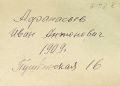 Афанасьев
Иван Антонович
1909г.
Пушкинская 16